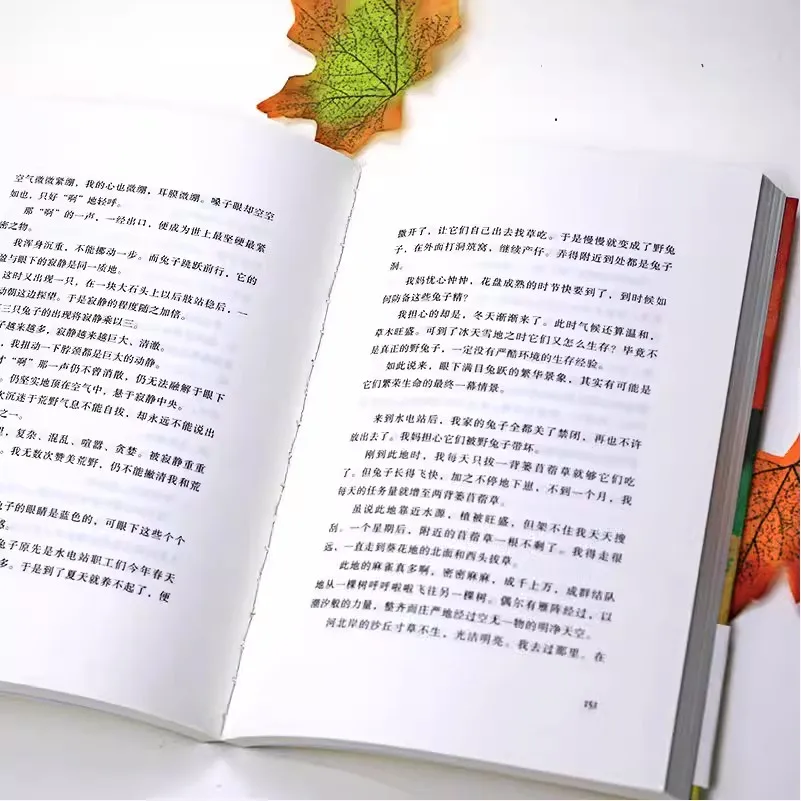 空气微微紧绷，我的心也微绷，耳膜微绷。嗓子眼却空空
如也，只好“啊”地轻呼。
那“啊”的一声，一经出口，便成为世上最坚硬最紧
密之物。
我浑身沉重，不能挪动一步。而兔子跳跃前行，它的
盈与眼下的寂静是同一质地。
这时又出现一只，在一块大石头上以后肢站稳后，一
动朝这边探望。于是寂静的程度随之加倍。
三只兔子的出现将寂静乘以三。
子越来越多，寂静越来越巨大、清澈。
，我扭动一下脖颈都是巨大的动静。
才“啊”那一声仍不曾消散，仍无法融解于眼下
。仍坚实地顶在空气中，悬于寂静中央。
次沉迷于荒野气息不能自拔，却永远不能说出
之一。
里，复杂、混乱、喧嚣、贪婪。被寂静重重
。我无数次赞美荒野，仍不能撇清我和荒
兔子的眼睛是蓝色的，可眼下这些个个
惑。
兔子原先是水电站职工们今年春天
多。于是到了夏天就养不起了，便
撒开了，让它们自己出去找草吃。于是慢慢就变成了野兔
子，在外面打洞筑窝，继续产仔。弄得附近到处都是兔子
洞。
我妈忧心忡忡，花盘成熟的时节快要到了，到时候如
何防备这些兔子精？
我担心的却是，冬天渐渐来了。此时气候还算温和，
草木旺盛。可到了冰天雪地之时它们又怎么生存？毕竟不
是真正的野兔子，一定没有严酷环境的生存经验。
如此说来，眼下满目兔跃的繁华景象，其实有可能是
它们繁荣生命的最终一幕情景。
来到水电站后，我家的兔子全都关了禁闭，再也不许
放出去了。我妈担心它们被野兔子带坏。
刚到此地时，我每天只拔一背篓苜蓿草就够它们吃
了。但兔子长得飞快，加之不停地下崽，不到一个月，我
每天的任务量就增至两背篓苜蓿草。
虽说此地靠近水源，植被旺盛，但架不住我天天搜
刮。一个星期后，附近的苜蓿草一根不剩了。我得走很
远，一直走到葵花地的北面和西头拔草。
此地的麻雀真多啊，密密麻麻，成千上万，成群结队
地从一棵树呼呼啦啦飞往另一棵树。偶尔有雁阵经过，以
潮汐般的力量，整齐而庄严地经过空无一物的明净天空。
河北岸的沙丘寸草不生，光洁明亮。我去过那里。在
151